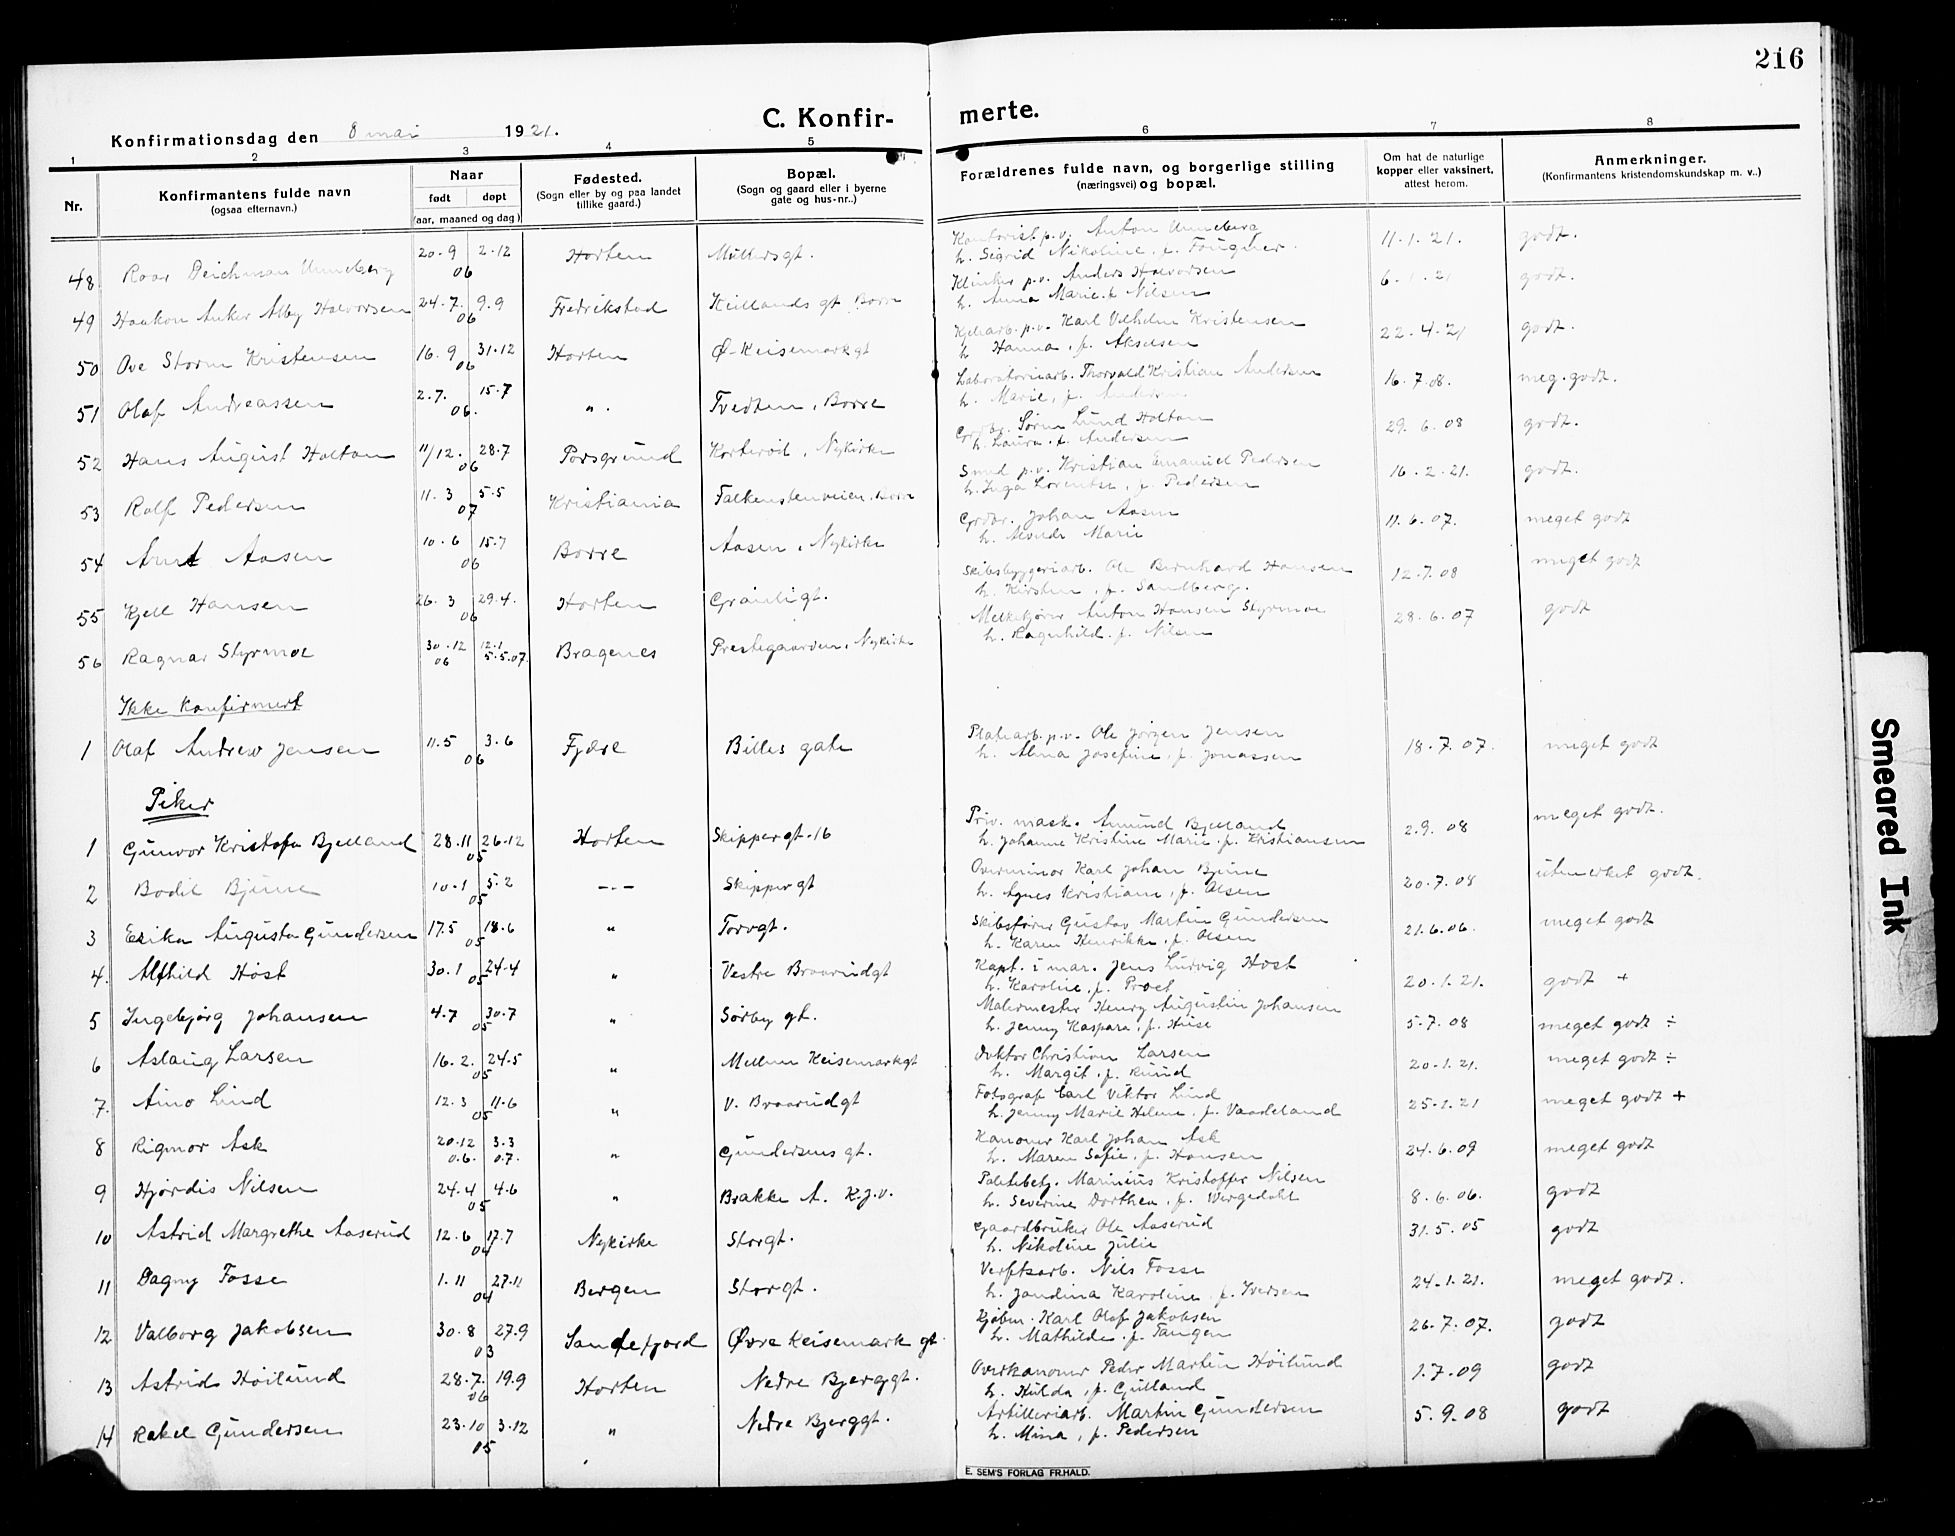 216
C. Konfir- merte.
Konfirmationsdag den 8 mai 1921.
1 2 3 4 5 6 7 8
Nr.
Konfirmantens fulde navn
(ogsaa efternavn.)
Naar
født døpt
(aar, maaned og dag)
Fødested.
(Sogn eller by og paa landet
tillike gaard.)
Bopæl.
(Sogn og gaard eller i byerne
gate og hus-nr..)
Forældrenes fulde navn, og borgerlige stilling
(næringsvei) og bopæl.
Om hat de naturlige
kopper eller vaksinert,
attest herom.
Anmerkninger.
(Konfirmantens kristendomskundskap m. v..)
48 Roar Deichman Unneberg 20.9 2.12 06 Horten Müllersgt. Kontorist p.v. Anton Unneberg
h. Sigrid Nikoline, f. Fougner. 11.1.21. godt.
49 Haakon Anker Alby Halvorsen 24.7. 9.9 06 Fredrikstad Kiellands gt Borre Klinker p.v. Anders Halvorsen
h. Anna Marie f. Nilsen 6.1.21 godt.
50 Ove Storm Kristensen 16.9 31.12 06 Horten Ø-Keisemarkgt Kjelearb. p.v. Karl Vilhelm Kristensen
h Hanna, f. Akselsen 22.4.21 godt.
51 Olaf Andreassen 2.7. 15.7 06. ". Tvedten, Borre Laboratoriearb. Thorvald Kristian Andersen
h. Marie, f. Andersen 16.7.08. meg. godt.
52 Hans August Holtan 11/12. 28.7 06 Porsgrund Korterød, Nykirke Grdbr. Søren Lund Holtan
h. Laura, f. Andersen 29.6.08 godt.
53 Rolf Pedersen 11.3 5.5 07 Kristiania Falkenstenveien, Borre Smed p.v. Kristian Emanuel Pedersen
h. Inga Lorentse, f. Pedersen 16.2.21. godt.
54 Arnt Aasen 10.6 15.7 06 Borre Aasen, Nykirke Grdbr. Johan Aasen
h. Alvilde Marie 11.6.07. meget godt
55 Kjell Hansen 26.3 29.4. 06 Horten Grønligt. Skibsbyggeriarb. Ole Bernhard Hansen
h. Kirsten, f. Sandberg. 12.7.08 meget godt
56 Ragnar Styrmoe 30.12 06 12.1 5.5.07. Bragenes Prestegaarden, Nykirke Melkekjører Anton Hansen Styrmoe
h. Ragnhild f. Nilsen 28.6.07 godt
Ikke konfirmert
1 Olaf Andrew Jensen 11.5 3.6 06 Fjære Billes gate Platearb. p.v. Ole Jørgen Jensen
h. Alma Josefine, f. Jonassen 18.7.07. meget godt
Piker
1 Gunvor Kristofa Bjelland 28.11 26.12 05 Horten Skippergt. 16 Priv. mask. Amund Bjelland
h. Johanne Kristine Marie f. Kristiansen 2.9.08 meget godt.
2 Bodil Bjune 10.1 5.2 05 -"- Skippergt Overminør Karl Johan Bjune
h. Agnes Kristiane, f. Olsen 20.7.08 utmerket godt.
3 Erika Augusta Gundersen 17.5 18.6 05 " Torvgt. Skibsfører Gustav Martin Gundersen
h. Karen Henrikke, f. Olsen 21.6.06. meget godt
4. Alfhild Høst 30.1 24.4 05 " Vestre Braarudgt Kapt. i mar. Jens Ludvig Høst
h. Karoline, f. 20.1.21. godt +
5 Ingebjørg Johansen 4.7 30.7 05 " Sørby gt. Malermester Henry Augustin Johansen
h. Jenny Kaspara, f. Huse 5.7.08 meget godt ÷
6 Aslaug Larsen 16.2. 24.5 05 " Mellem Keisemarkgt Doktor Christian Larsen
h. Margit, f. Ruud 20.1.21. meget godt ÷
7. Aino Lind 12.3 11.6 05 " V. Braarudgt Fotograf Carl Viktor Lind
h. Jenny Marie Helene, f. Vaadeland 25.1.21 meget godt +
8 Rigmor Ask 20.12 06. 3.3 07. " Gundersens gt. Kanoner Karl Johan Ask
h. Maren Sofie, f. Hansen 24.6.09 meget godt
9 Hjørdis Nilsen 24.4 4.6 05 " Brakke A. K.J.V. Marinius Kristoffer Nilsen
h. Severine Dorthea, f. Wergedahl 8.6.06. godt
10 Astrid Margrethe Aaserud 12.6 17.7 04 Nykirke Storgt. Gaardbruker Ole Aaserud
h. Nikoline Julie 31.5.05 godt
11 Dagny Fosse 1.11 27.11 04 Bergen Storgt. Verftsarb. Nils Fosse
h. Jondina Karoline, f. Iversen 24.1.21. meget godt.
12 Valborg Jakobsen 30.8 27.9 03 Sandefjord Øvre Keisemark gt. Kjøbm. Karl Olaf Jakobsen
h. Mathilde, f. Tangen 26.7.07. godt
13 Astrid Høilund 28.7. 19.9 06 Horten Nedre Bjerggt. Overkanoner Peder Martin Høilund
h. Hulda, f. Gulland 1.7.09 godt
14 Rakel Gundersen 23.10 3.12 05 " Nedre Bjerggt. Artilleriarb. Martin Gundersen
h. Mina, f. Pedersen 5.9.08 godt
E. SEM'S FORLAG FR.HALD.
Smeared Ink